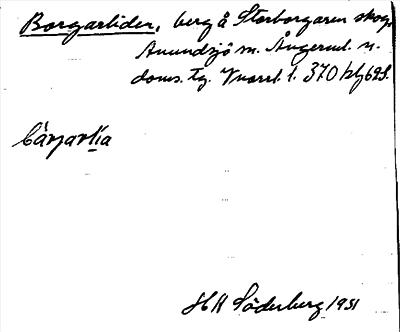 Borgarliden, berg å Storborgaren skog
Anundsjö sn. Ångerml. n.
doms. tg. Vuorel. l. 370 bl 69S.
bårjarlia
HK Söderberg 1931